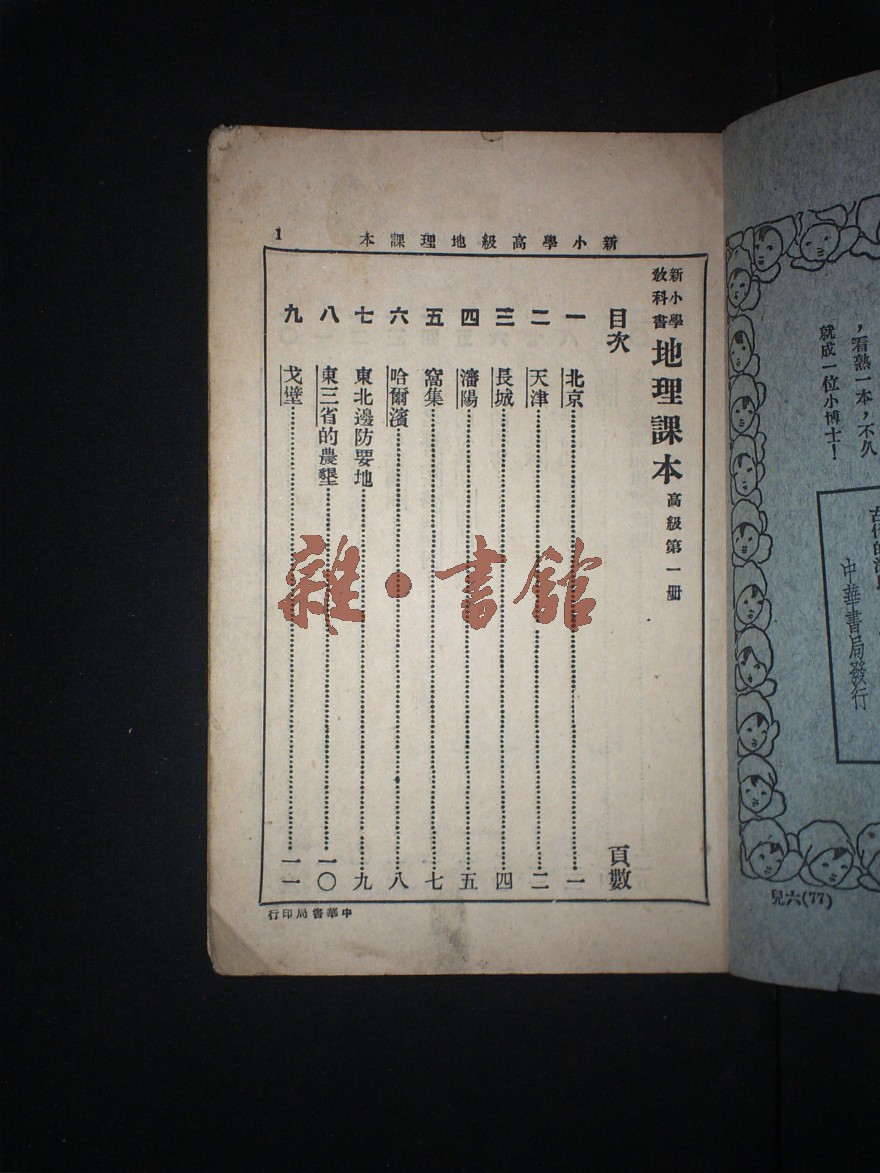 新小學高級地理課本
1
新小學
教科書
地理課本 高級第一册
目次 頁數
一 北京 一
二 天津 二
三 長城 四
四 瀋陽 五
五 窩集 七
六 哈爾濱 八
七 東北邊防要地 九
八 東三省的農墾 一〇
九 戈壁 一一
中華書局印行
雜·書館
，看熟一本，不久
就成一位小博士！
古代的
中華書局發行
兒六(77)